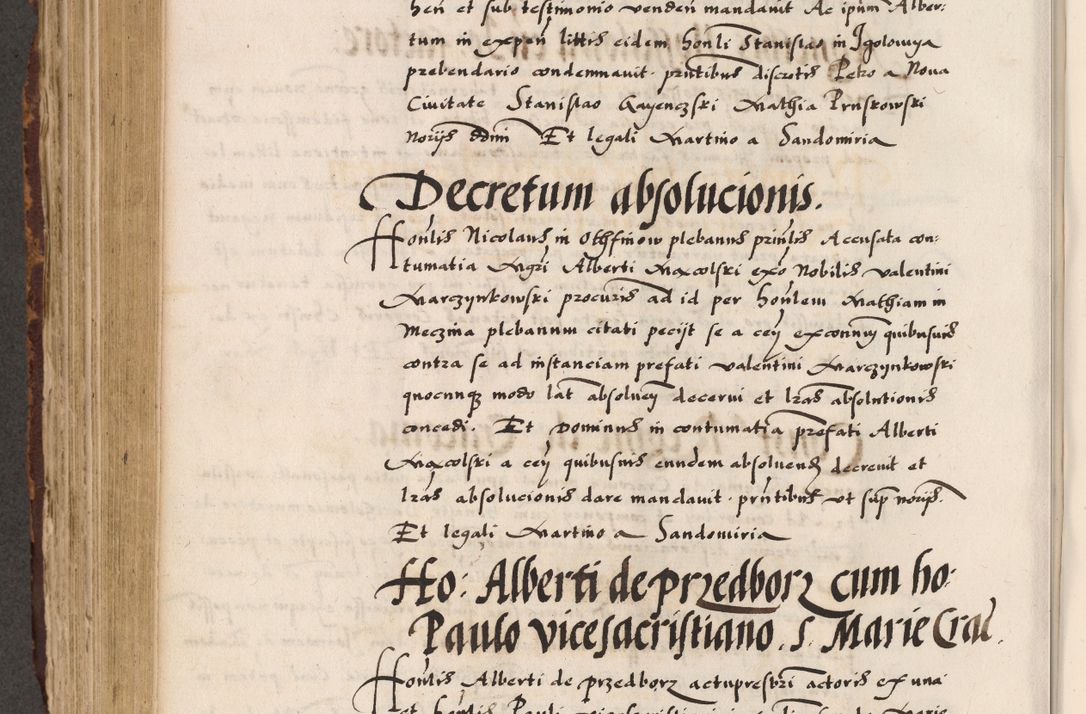 hen et sub testimonio venden mandauit Ac ipum Alber:
tum in expen littis eidem honli Stanislao in Igolomya
prebendario condemnauit. pntibus discretis Petro a Noua
Ciuitate Stanislao Gayenczski Mathia Prusskowski
Norijs ddmi Et legali Martino a Sandomiria
Decretum absolucionis.
Honlis Nicolaus in Othfinow plebanus prinlis Accusata con:
tumatia Mgri Alberti Maxcolski exo Nobilis Valentini
Marczynkowski procuris ad id per honlem Mathiam in
Meczina plebanum citati pecijt se a cen excommun quibusuis
contra se ad instanciam prefati Valentini Marczynkowski
quocunq modo lat absoluen decerni et lras absolutionis
concedi. Et Dominus in contumatia prefati Alberti
Maxcolski a cen quibusuis eundem absoluend decreuit et
lras absolucionis dare mandauit. pntibus vt sup norijs.
Et legali Martino a Sandomiria
Ho: Alberti de przedborz cum ho:
Paulo vicesacristiano . S. Marie Crac.
Honlis Alberti de przedborz actuprestri actoris ex una
et honlis Pauli vicesacristiani Marie